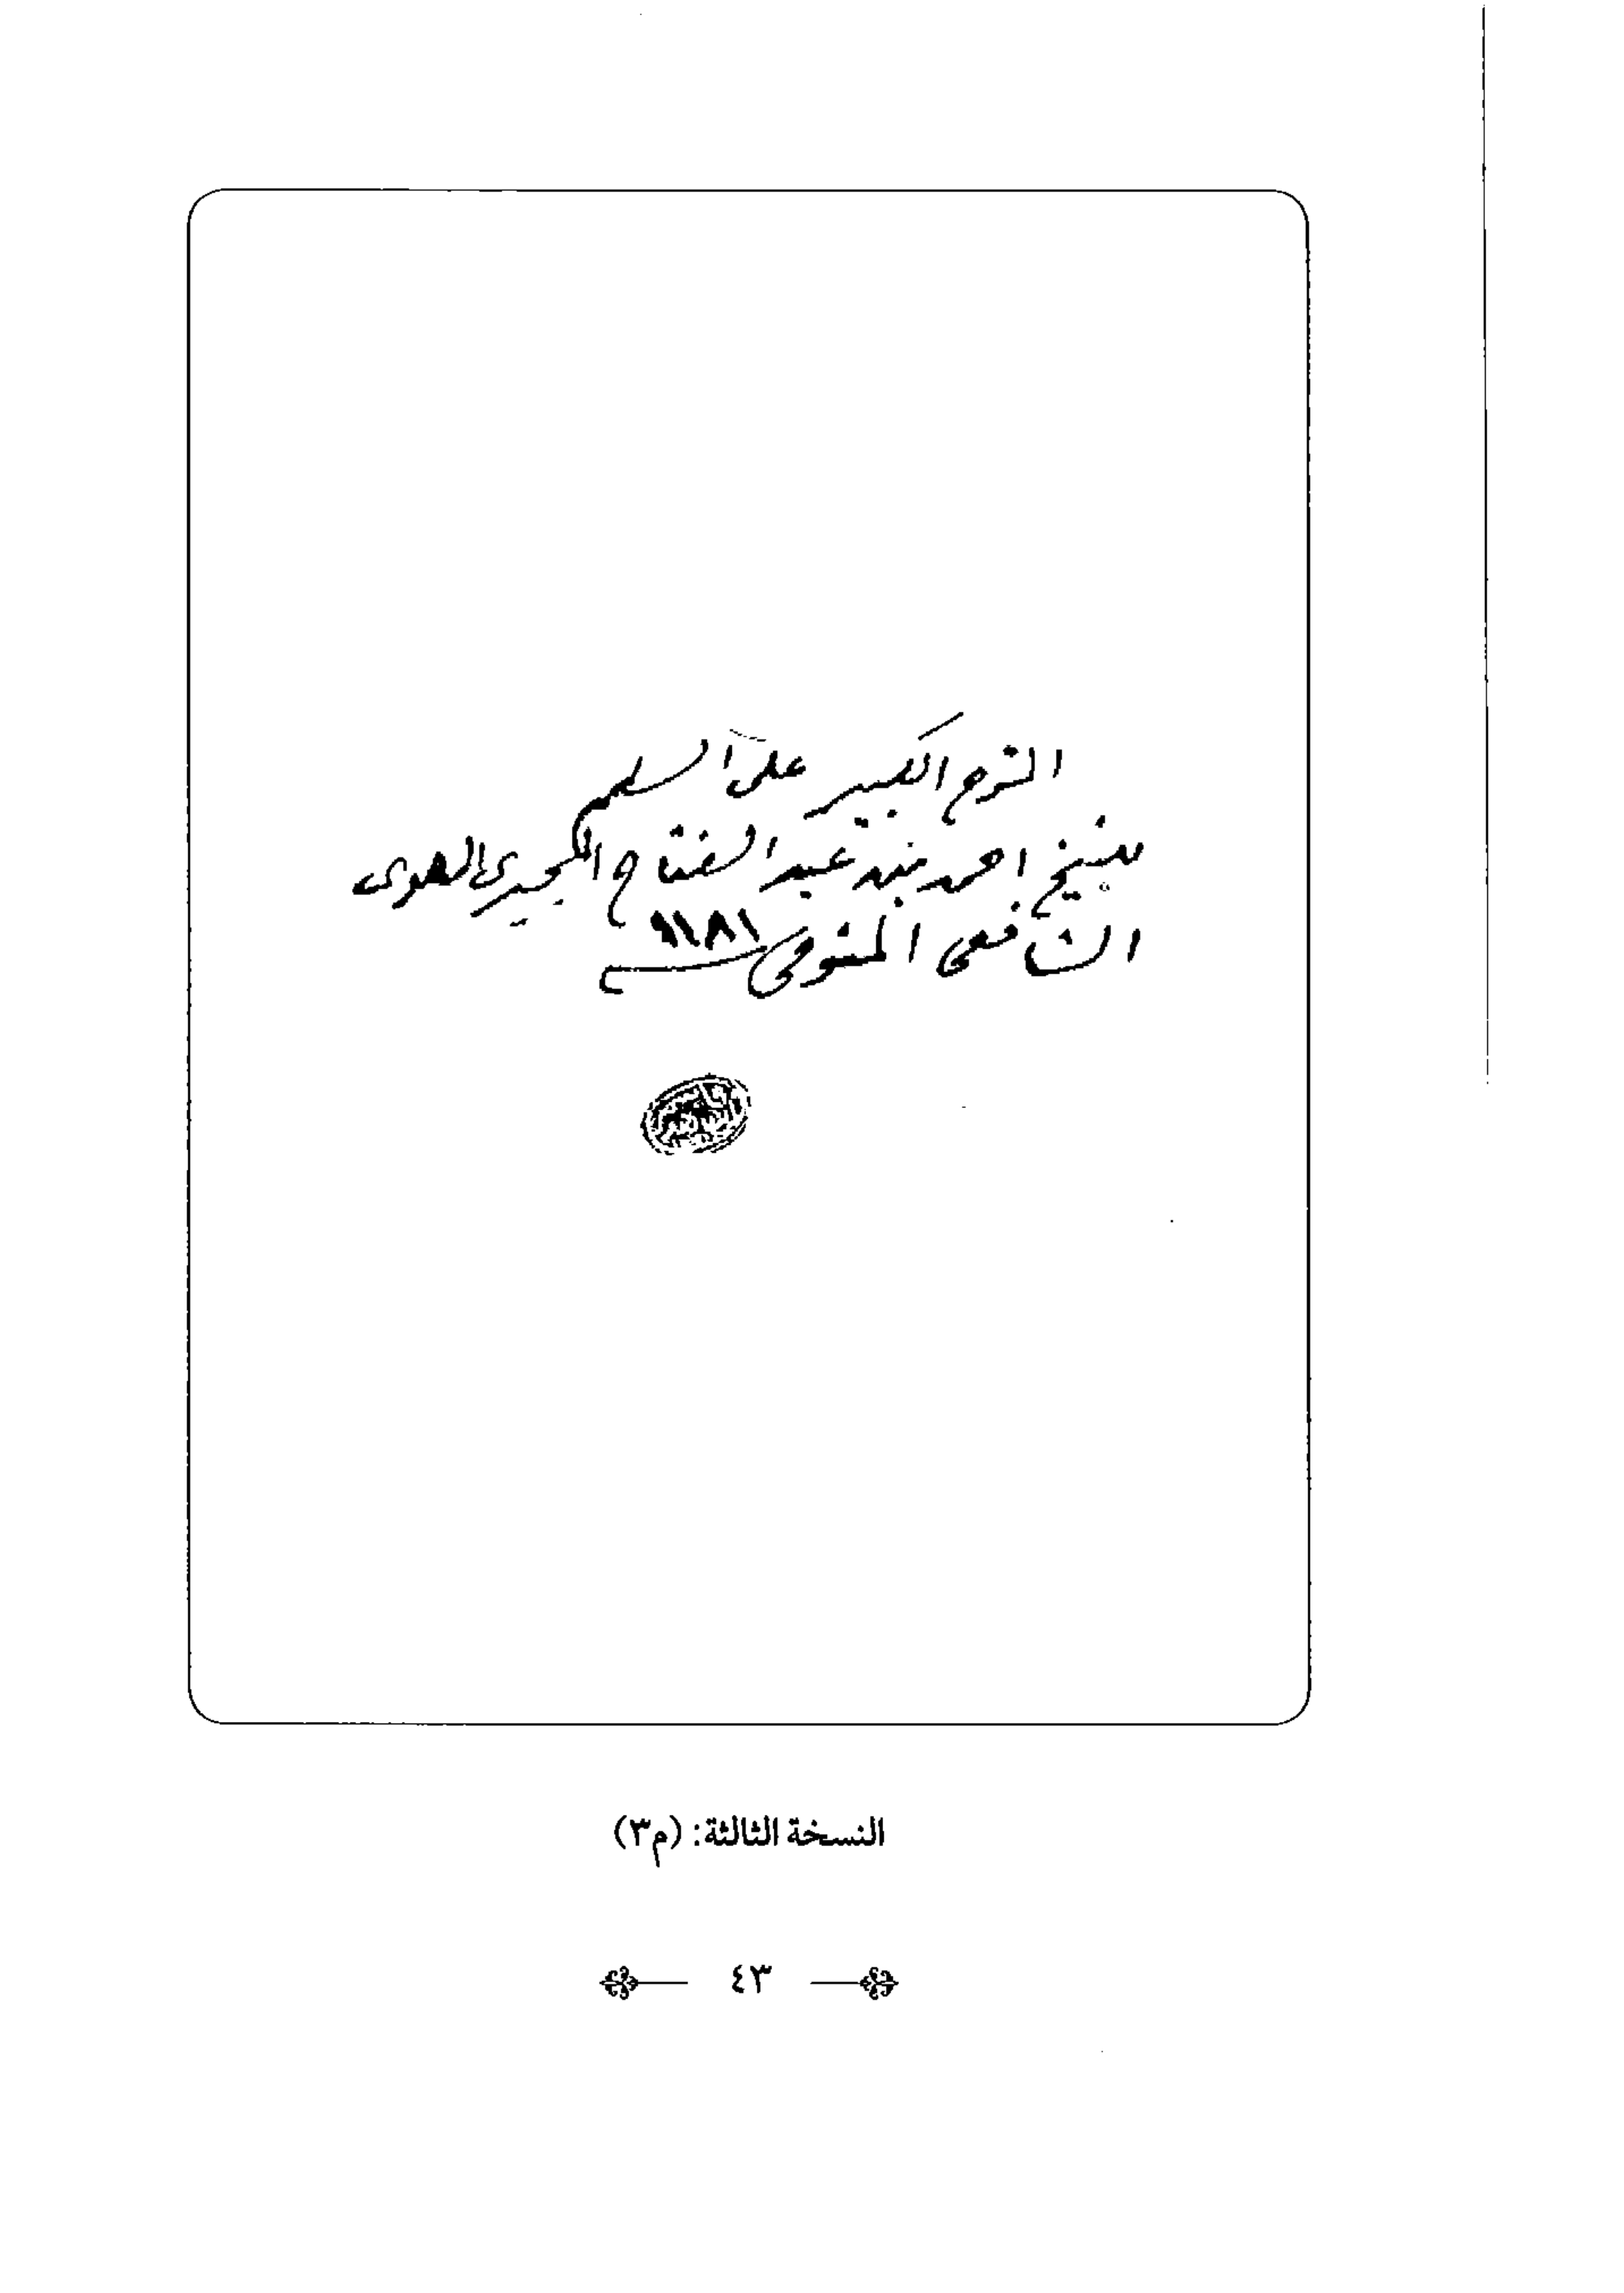 الشرح الكبير على السلم
للشيخ احمد بن عبد الفتاح المجيرى الملوى
الشافعى المتوفى سنة
النسخة الثالثة: (م٣)
٤٣